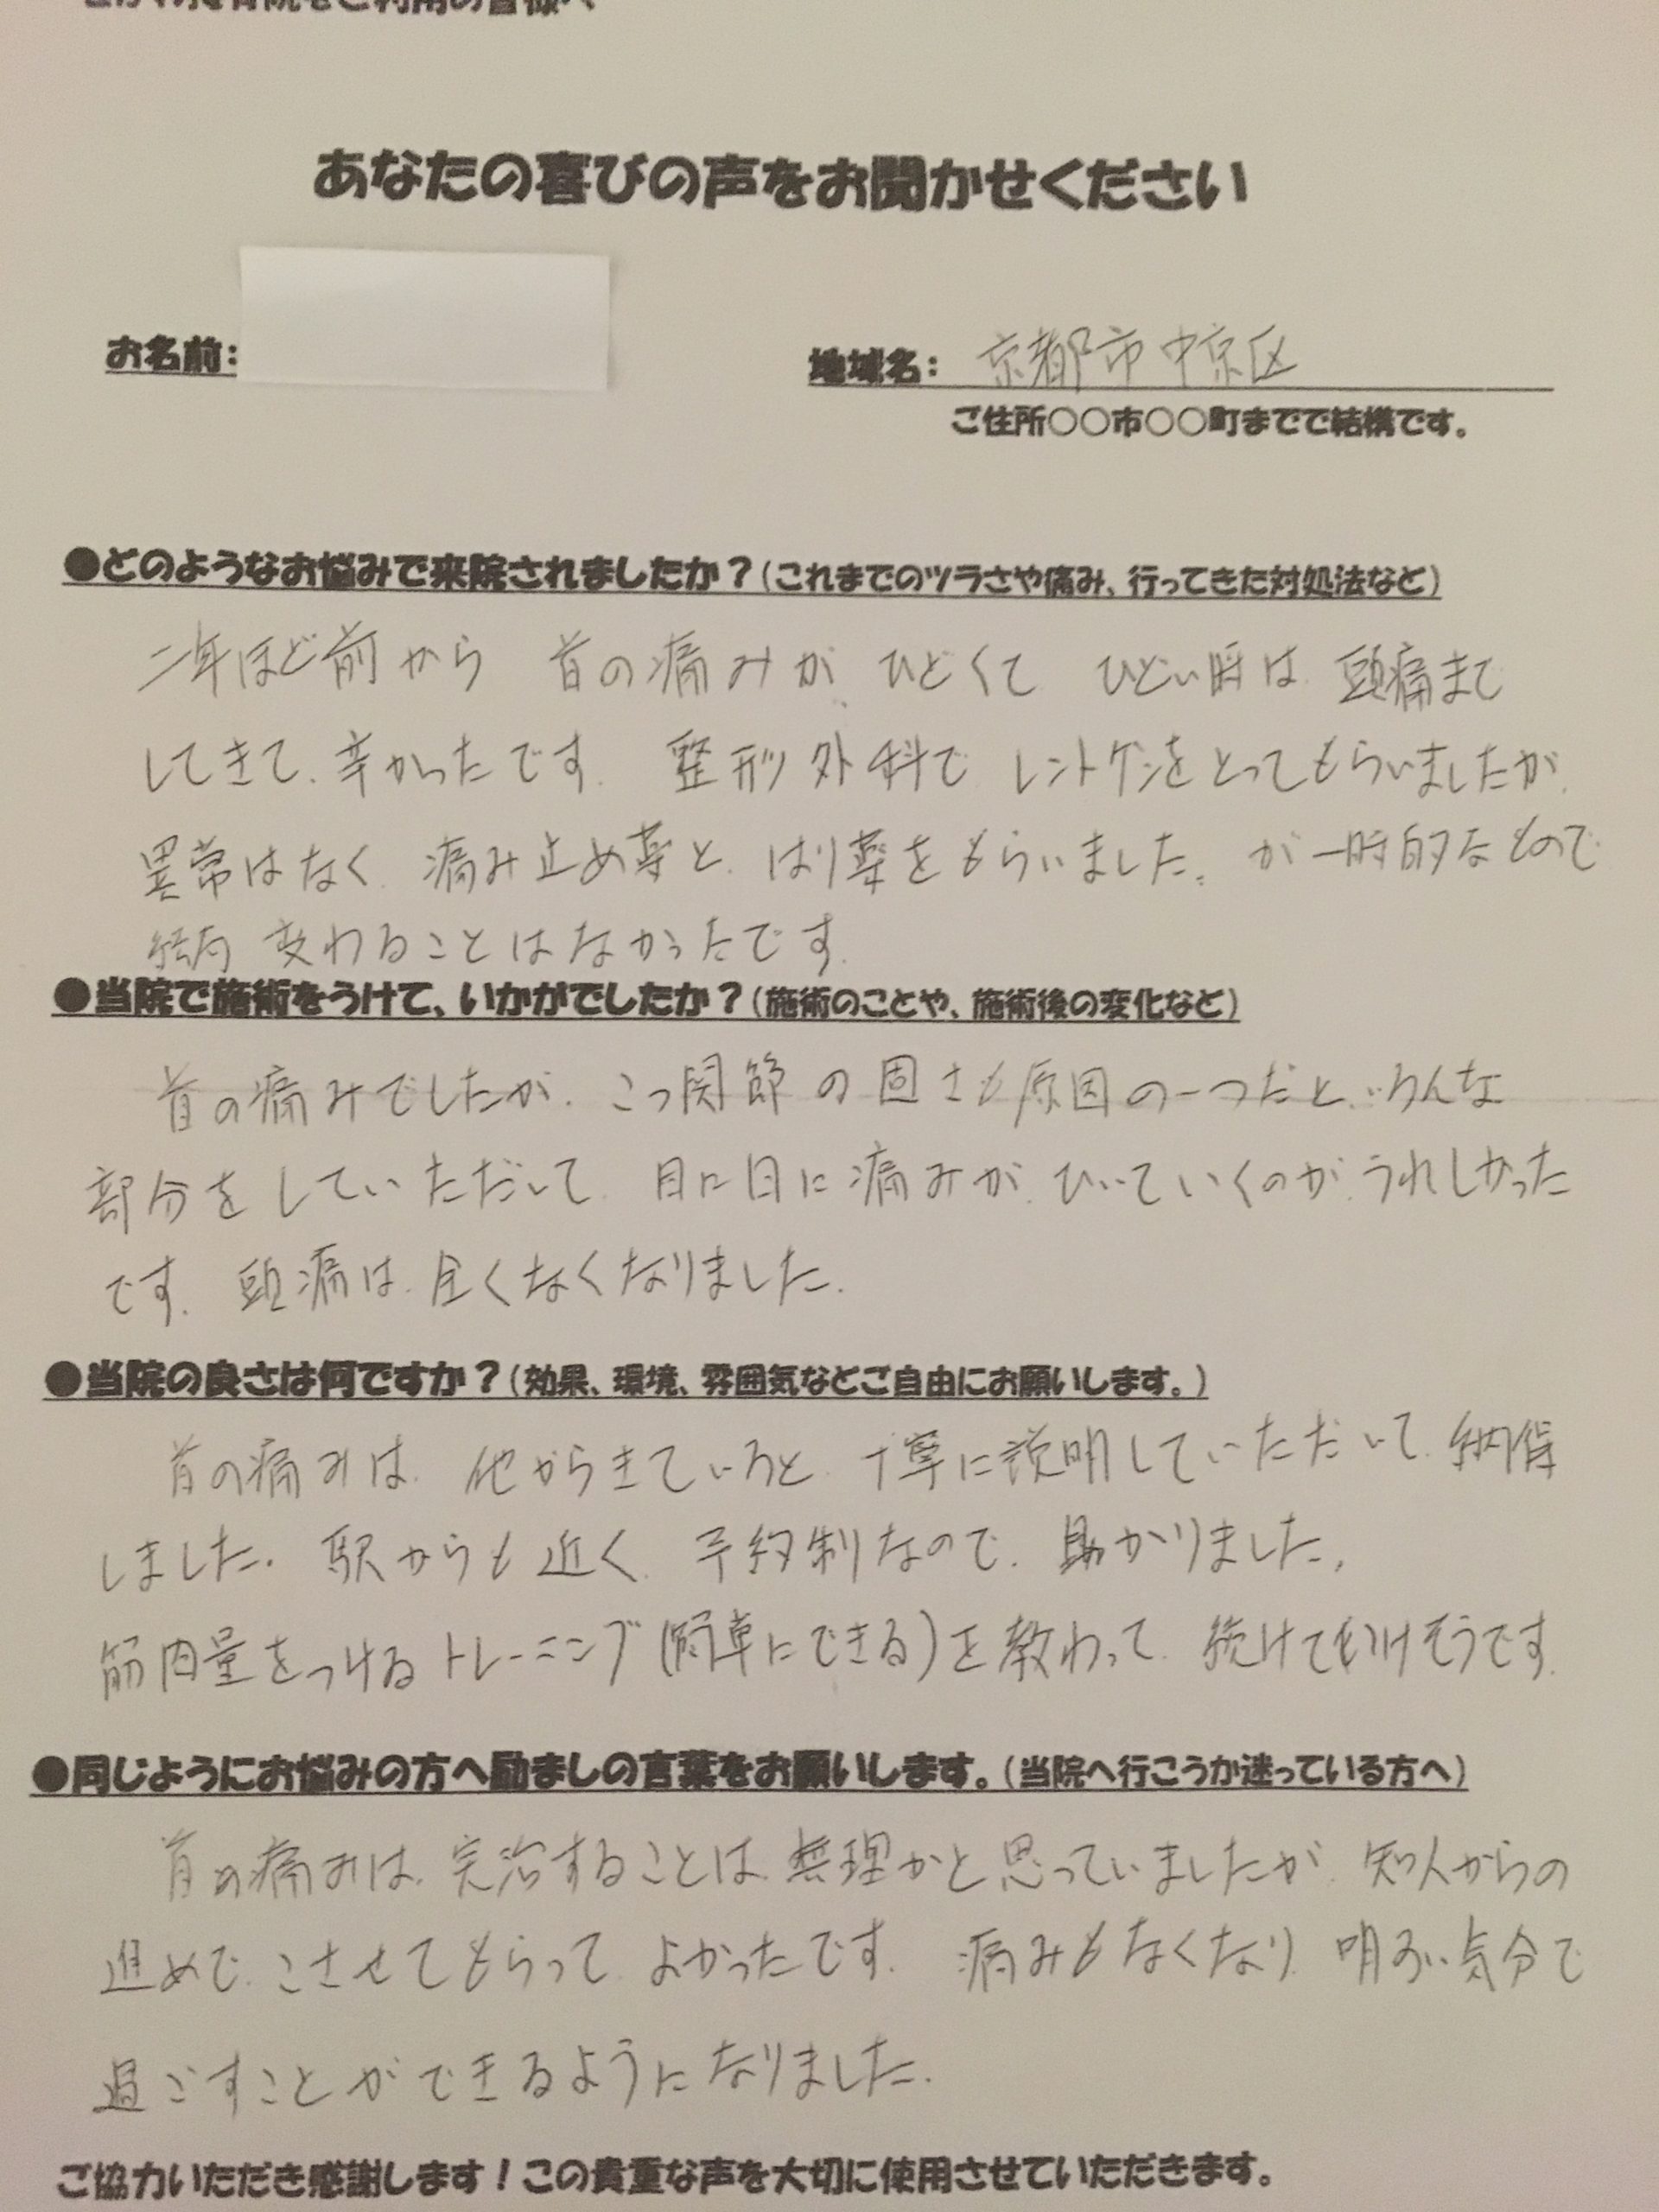 をご利用の皆様へ
あなたの喜びの声をお聞かせください
お名前:
地域名: 京都市中京区
ご住所○○市○○町までで結構です。
●どのようなお悩みで来院されましたか?(これまでのツラさや痛み、行ってきた対処法など)
二年ほど前から 首の痛みが、ひどくて ひどい時は、頭痛まで
してきて、辛かったです。 整形外科で レントゲンをとってもらいましたが、
異常はなく、痛み止め薬と、はり薬をもらいました。が一時的なもので
結局 変わることはなかったです。
●当院で施術をうけて、いかがでしたか?(施術のことや、施術後の変化など)
首の痛みでしたが、こつ関節の固さも原因の一つだと、いろんな
部分をしていただいて、日に日に痛みが、ひいていくのが、うれしかった
です。頭痛は、全くなくなりました。
●当院の良さは何ですか?(効果、環境、雰囲気などご自由にお願いします。)
首の痛みは、他からきていると、丁寧に説明していただいて、納得
しました。駅からも近く、予約制なので、助かりました。
筋肉量をつけるトレーニング(簡単にできる)を教わって、続けていけそうです。
●同じようにお悩みの方へ励ましの言葉をお願いします。(当院へ行こうか迷っている方へ)
首の痛みは、完治することは、無理かと思っていましたが、知人からの
進めで、こさせてもらって、よかったです。 痛みもなくなり、明るい気分で
過ごすことができるようになりました。
ご協力いただき感謝します!この貴重な声を大切に使用させていただきます。